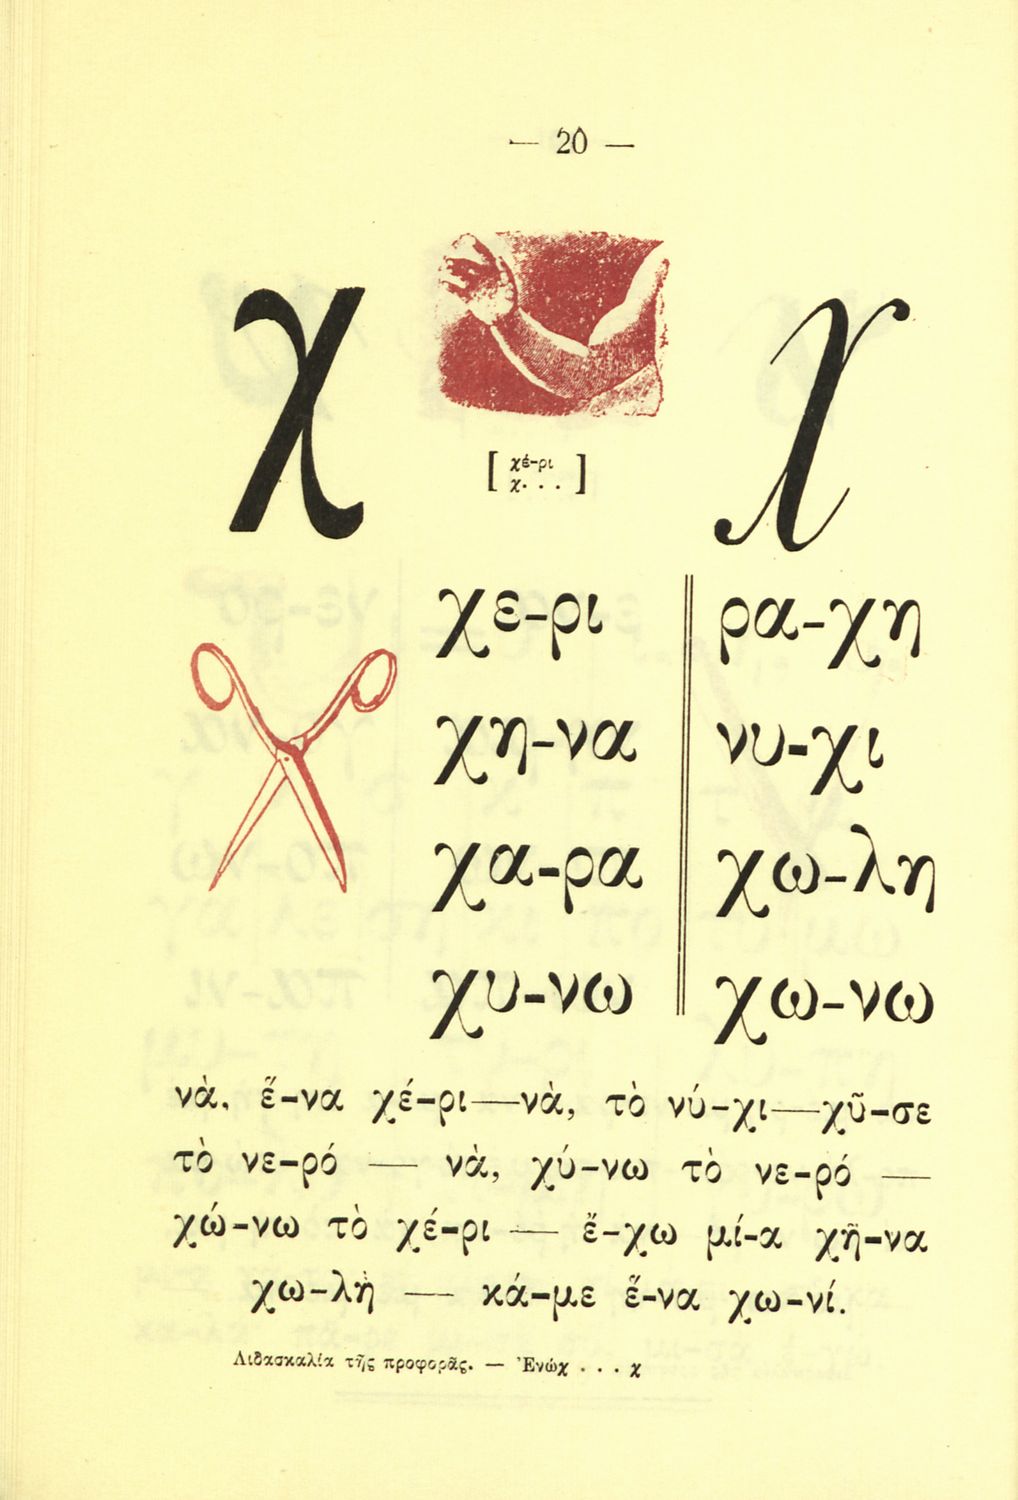 — 20 —
χ χ
[ χέ-ρι
χ. . . ]
χε-ρι ρα-χη
χη-να νυ-χι
χα-ρα χω-λη
χυ-νω χω-νω
νὰ, ἕ-να χέ-ρι—νὰ, τὸ νύ-χι—χῦ-σε
τὸ νε-ρό — νὰ, χύ-νω τὸ νε-ρό —
χώ-νω τὸ χέ-ρι — ἔ-χω μί-α χῆ-να
χω-λὴ — κά-με ἕ-να χω-νί.
Διδασκαλία τῆς προφορᾶς. — Ἐνώχ . . . χ